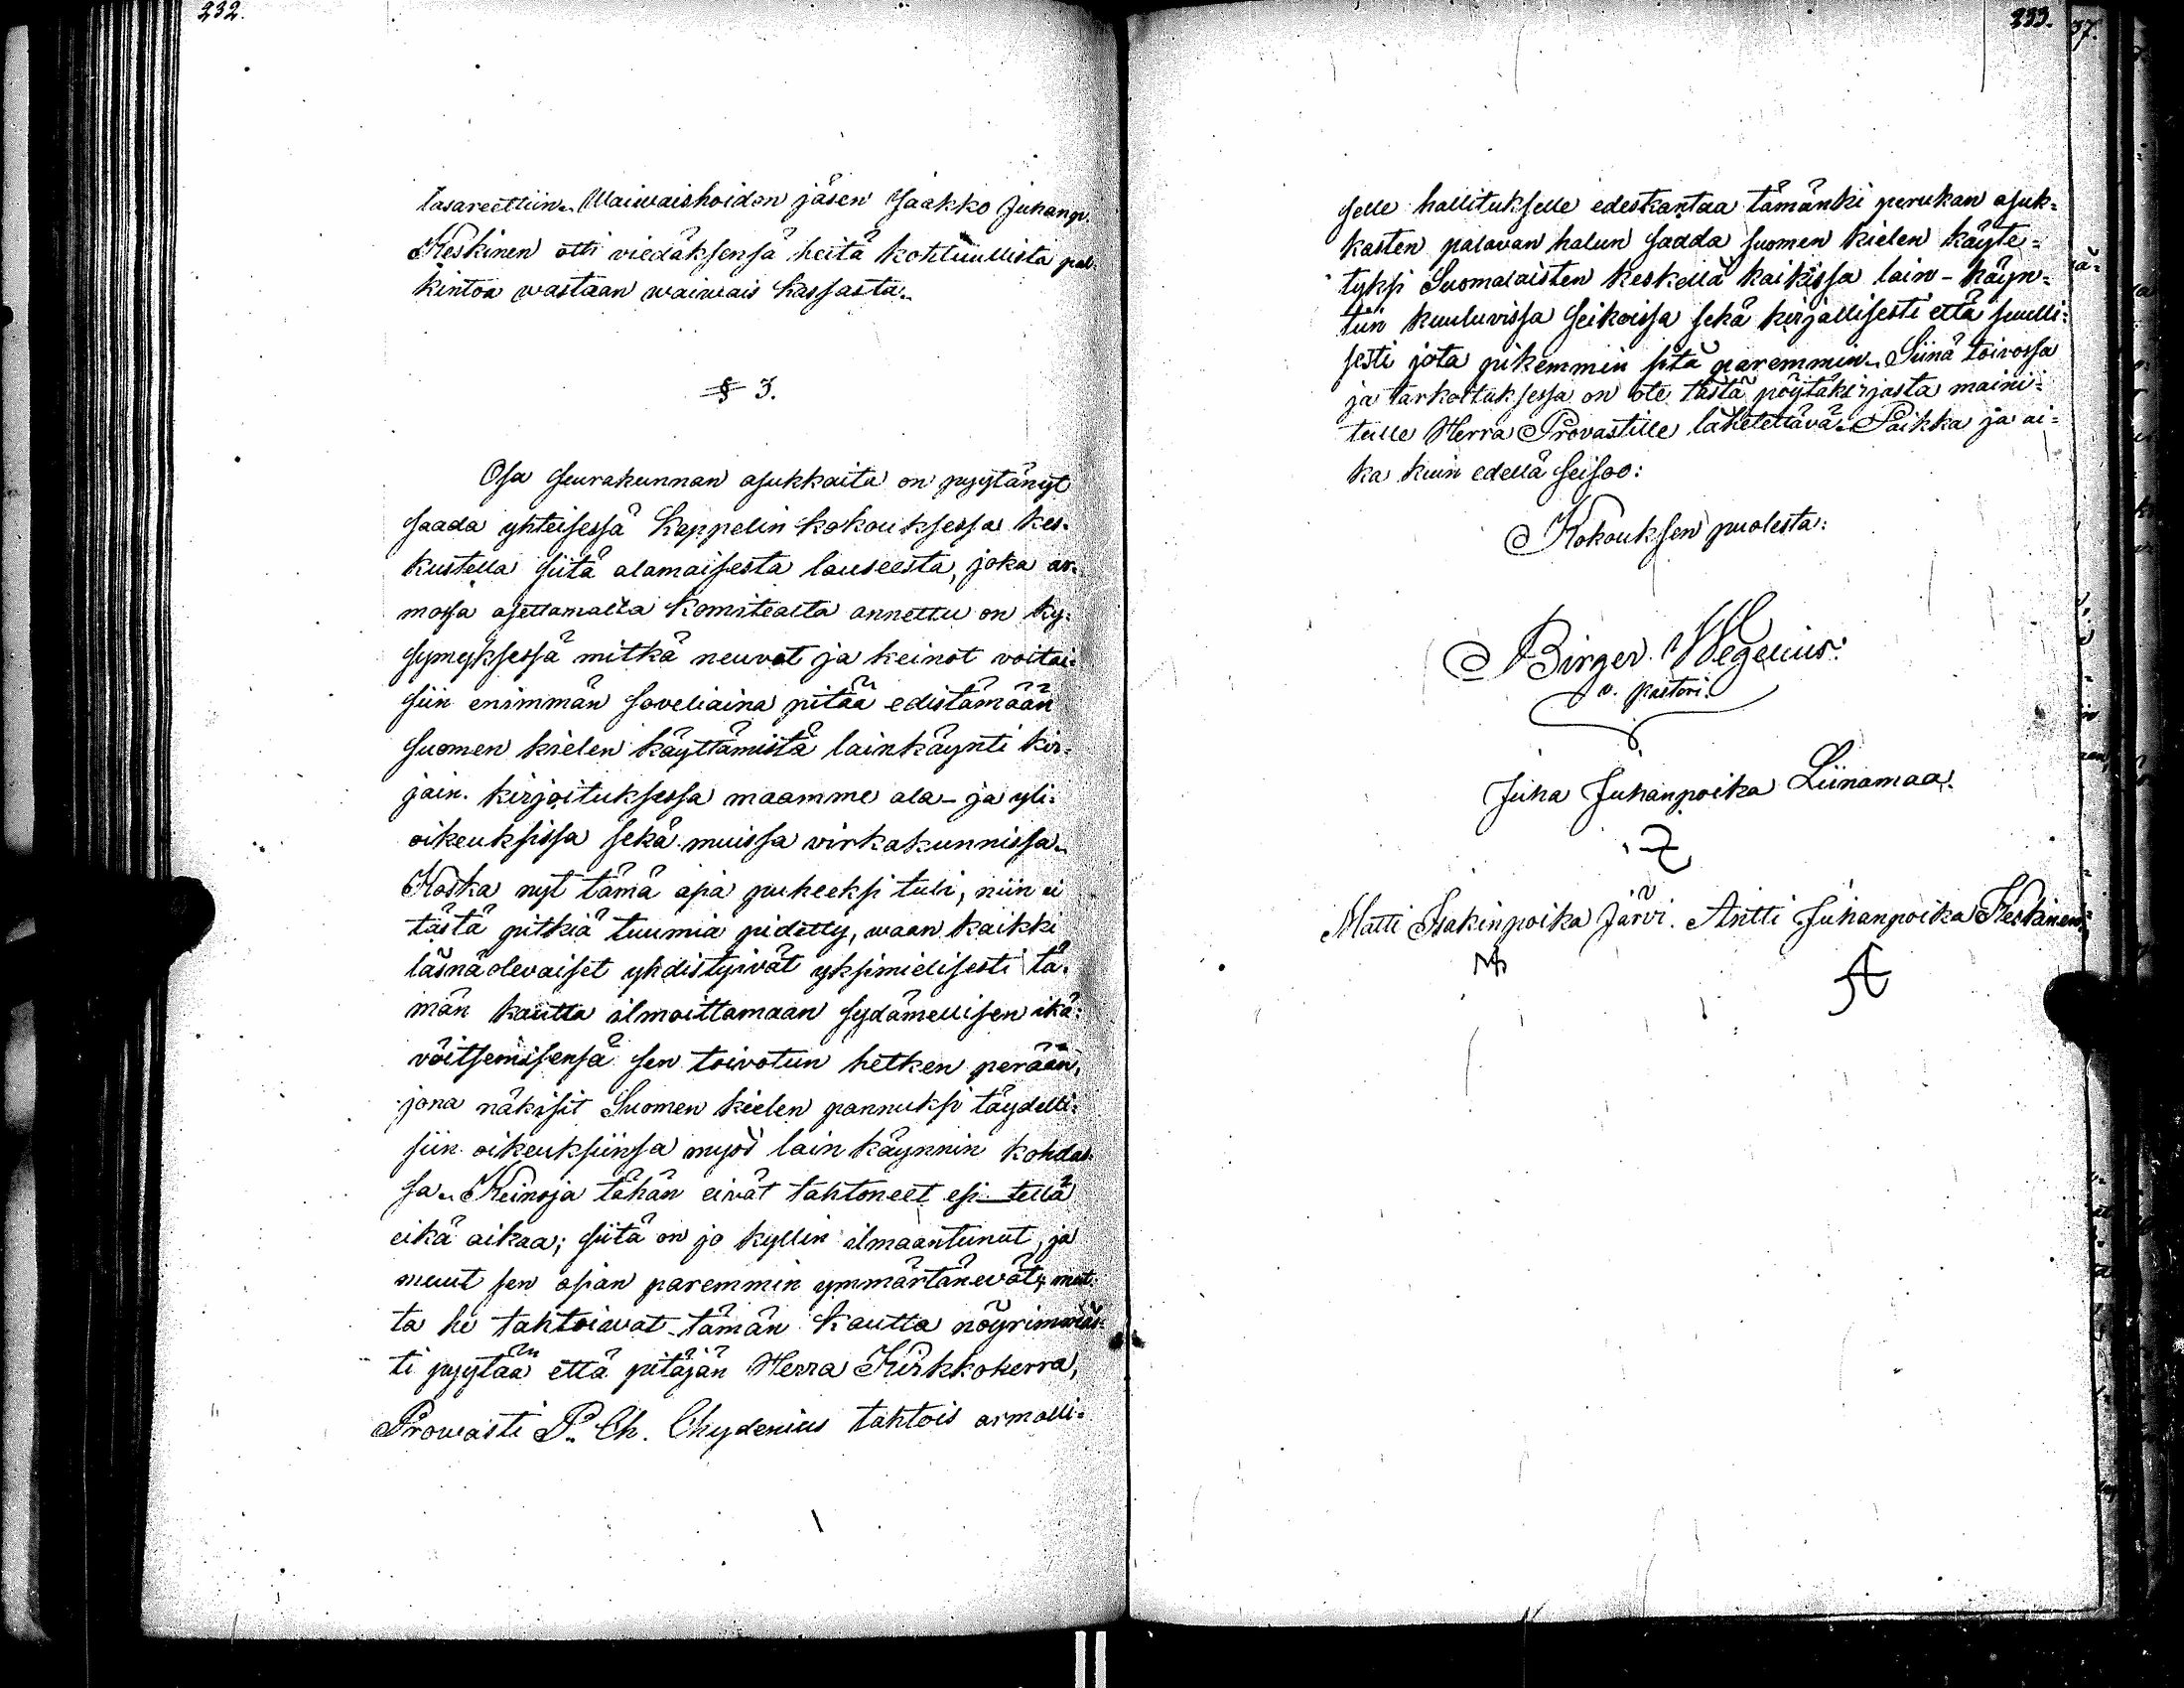 232.
lasareettiin. Waiwaishoidon jäsen Jaakko Juhanp.
Keskinen otti viedäksensä heitä kohtuullista pal-
kintoa wastaan waiwais kassasta.
§ 3.
Osa seurakunnan asukkaita on pyytänyt
saada yhteisessä kappelin kokouksessa kes-
kustella siitä alamaisesta lauseesta, joka ar-
mossa asettamalta komitealta annettu on ky-
symyksessä mitkä neuvot ja keinot voitai-
siin enimmän soveliaina pitää edistämään
suomen kielen käyttämistä lainkäynti kir-
jain. kirjoituksessa maamme ala- ja yli-
oikeuksissa sekä muissa virkakunnissa.
Koska nyt tämä asia puheeksi tuli, niin ei
tästä pitkiä tuumia pidetty, waan kaikki
läsnäolevaiset yhdistyivät yksimielisesti tä-
män kautta ilmoittamaan sydämellisen ikä-
vöitsemisensä sen toivotun hetken perään,
jona näkisit Suomen kielen pannuksi täydelli-
siin oikeuksiinsa myös lain käynnin kohdas-
sa. Keinoja tähän eivät tahtoneet esi-tellä
eikä aikaa; siitä on jo kyllin ilmaantunut, ja
muut sen asian paremmin ymmärtänevät; mut-
ta he tahtoiwat tämän kautta nöyrimmäs-
ti pyytää että pitäjän Herra Kirkkoherra,
Prowasti P. Ch. Chydenius tahtois armolli-
233.
37.
selle hallitukselle edeskantaa tämänki perukan asuk-
kasten palavan halun saada suomen kielen käyte-
tyksi Suomalaisten keskellä kaikissa lain-käyn-
tiin kuuluvissa seikoissa sekä kirjallisesti että suulli-
sesti jota pikemmin sitä paremmin. Siinä toivossa
ja tarkoituksessa on ote tästä pöytäkirjasta maini-
tulle Herra Provastille lähetettävä. Paikka ja ai-
ka kuin edellä seisoo:
Kokouksen puolesta:
Birger Wegelius:
v. pastori.
Juha Juhanpoika Liinamaa.
Matti Isakinpoika Järvi. Antti Juhanpoika Keskinen